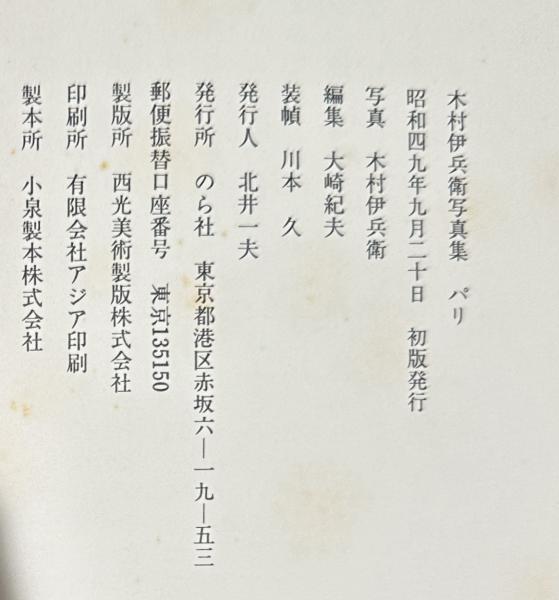 木村伊兵衛写真集　パリ
昭和四九年九月二十日　初版発行
写真　木村伊兵衛
編集　大崎紀夫
装幀　川本　久
発行人　北井一夫
発行所　のら社　東京都港区赤坂六―一九―五三
郵便振替口座番号　東京135150
製版所　西光美術製版株式会社
印刷所　有限会社アジア印刷
製本所　小泉製本株式会社